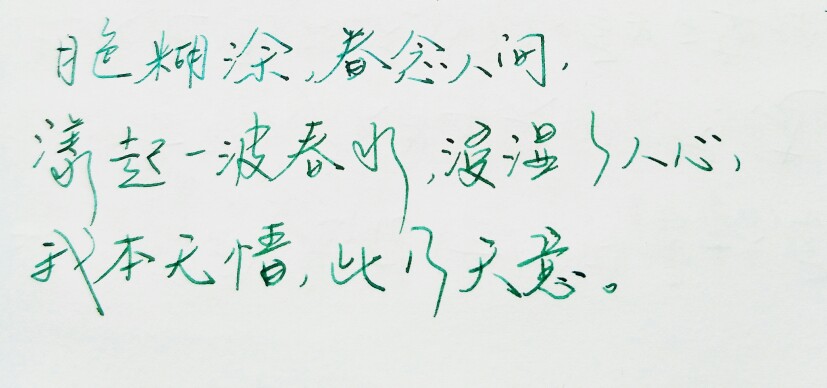 月色糊涂,眷念人间,
漾起一波春水,浸湿了人心,
我本无情,此乃天意。